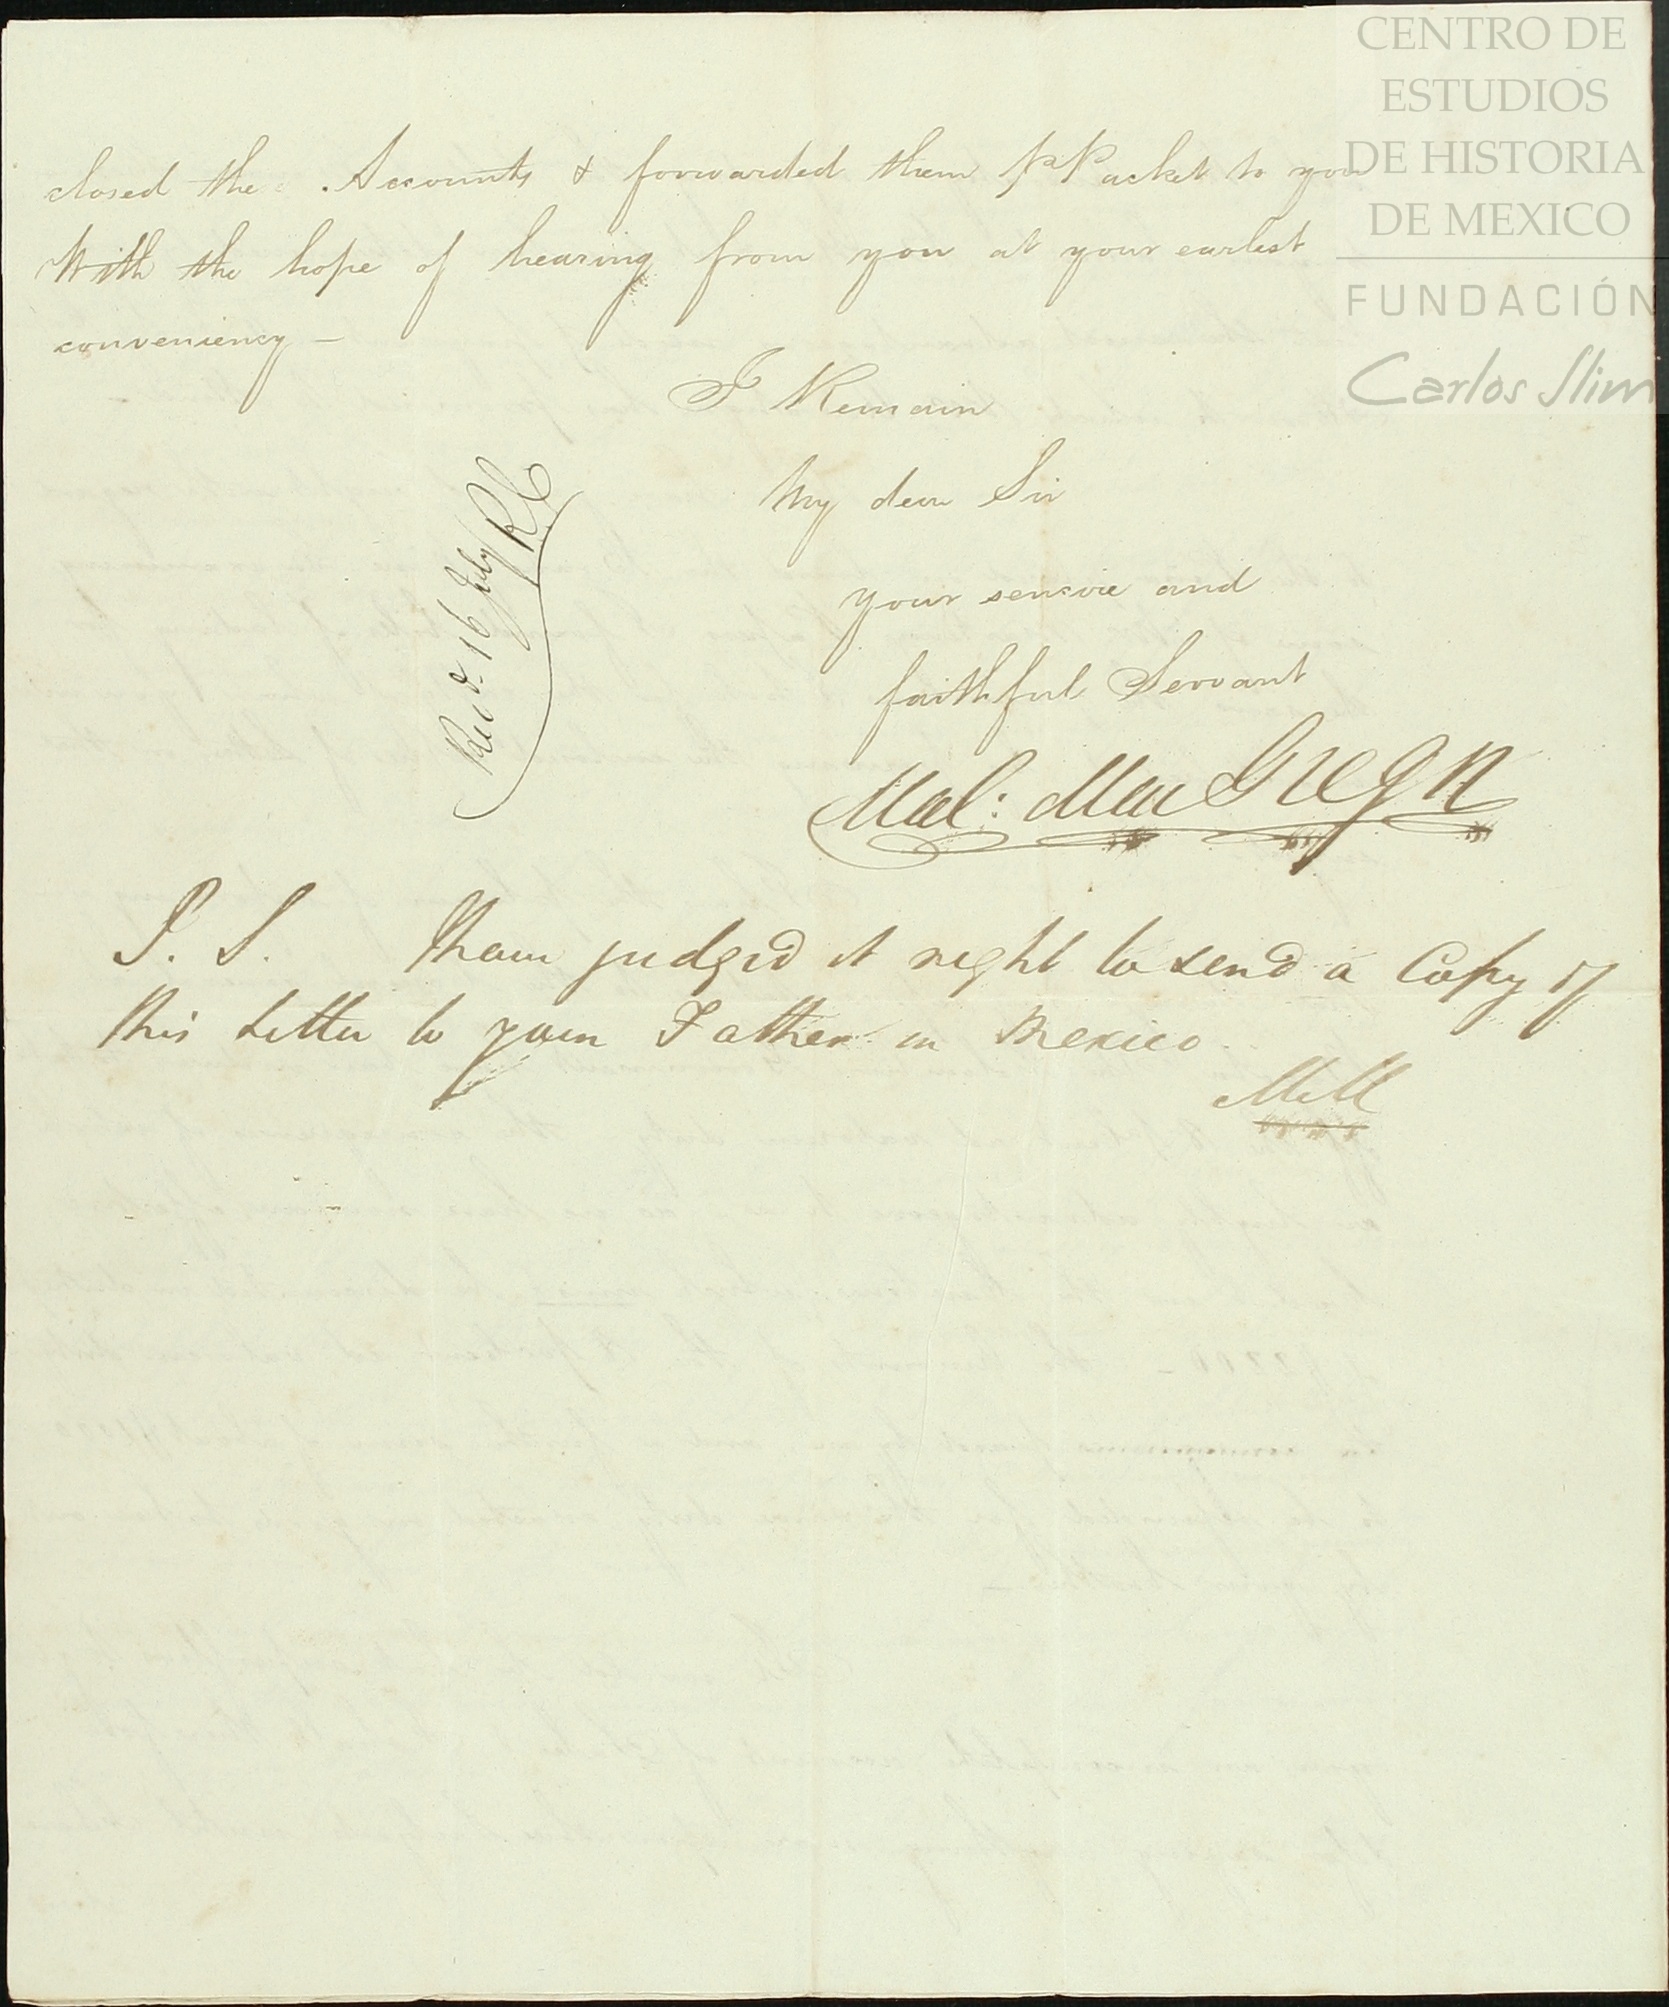 closed the Accounts & forwarded them pr Packet to you
With the hope of hearing from you at your earlest
conveniency –
I Remain
My dear Sir
your sencire and
faithful Servant
Mal: MacGregor
Recd. 16 July RC
P. S. I have judged it right to send a Copy of
this Letter to your Father in Mexico.
MM
CENTRO DE
ESTUDIOS
DE HISTORIA
DE MEXICO
FUNDACIÓN
Carlos Slim